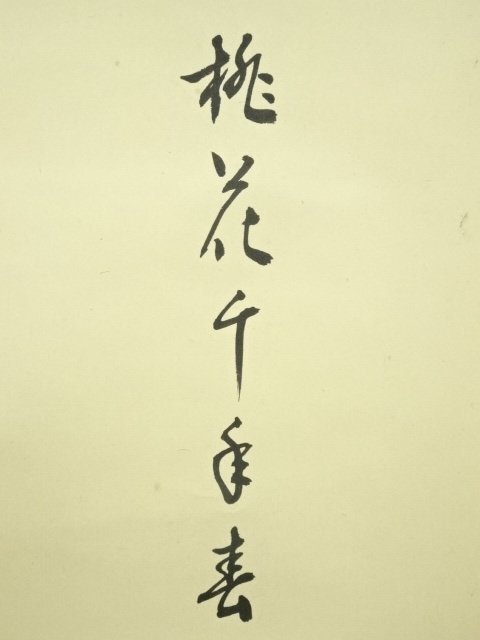 桃花千年春